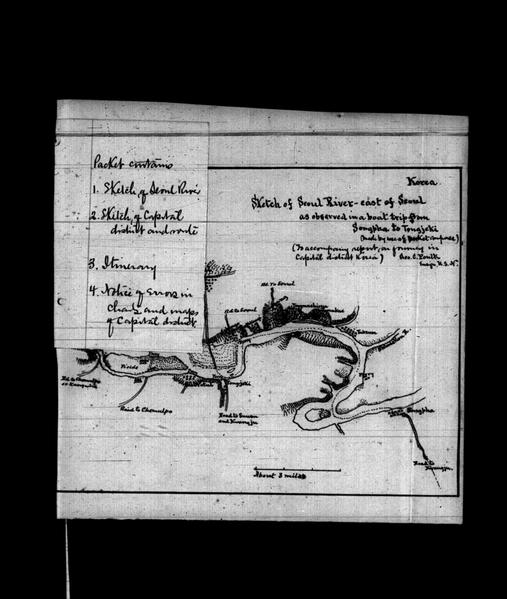 Packet contains
1. Sketch of Seoul River
2. Sketch of Capital
district and route
3. Itinerary
4. Notice of Errors in
charts and maps
of Capital district
Korea
Sketch of Seoul River - east of Seoul
as observed in a boat trip from
Songpha to Tongjeki
(Made by use of pocket compass)
(To accompany report, on journey in
Capital district Korea)
Geo. C. Foulk
Ensign U.S.N.
Rd. to Seoul
Rd. to Seoul
Fields
Rd. to Chemulpo
Road to Chemulpo
Road to Suwon
and
Songpha
Road to
About 3 miles